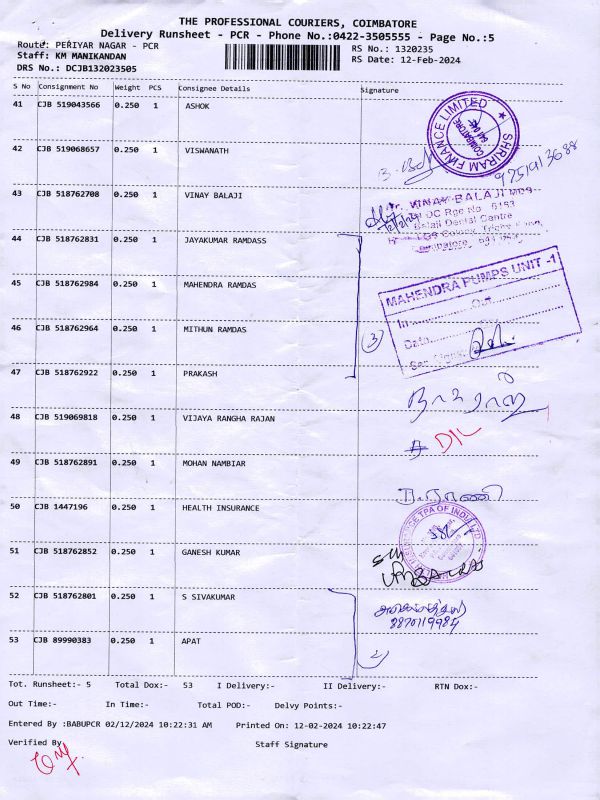 THE PROFESSIONAL COURIERS, COIMBATORE
Delivery Runsheet - PCR - Phone No.:0422-3505555 - Page No.:5
Route: PERIYAR NAGAR - PCR
RS No.: 1320235
Staff: KM MANIKANDAN
RS Date: 12-Feb-2024
DRS No.: DCJB132023505
S No Consignment No Weight PCS Consignee Details Signature
41 CJB 519043566 0.250 1 ASHOK
SHRIRAM FINANCE LIMITED
COIMBATORE
42 CJB 519068657 0.250 1 VISWANATH
9751913688
43 CJB 518762708 0.250 1 VINAY BALAJI
VINAY BALAJI MDS
Balaji Dental Centre
44 CJB 518762831 0.250 1 JAYAKUMAR RAMDASS
45 CJB 518762984 0.250 1 MAHENDRA RAMDAS
MAHENDRA PUMPS UNIT -1
In Out
Date
46 CJB 518762964 0.250 1 MITHUN RAMDAS
3
47 CJB 518762922 0.250 1 PRAKASH
நாகராஜ்
48 CJB 519069818 0.250 1 VIJAYA RANGHA RAJAN
D/L
49 CJB 518762891 0.250 1 MOHAN NAMBIAR
50 CJB 1447196 0.250 1 HEALTH INSURANCE
TPA OF INDIA LTD
51 CJB 518762852 0.250 1 GANESH KUMAR
52 CJB 518762801 0.250 1 S SIVAKUMAR
8870119984
53 CJB 89990383 0.250 1 APAT
2
Tot. Runsheet:- 5 Total Dox:- 53 I Delivery:- II Delivery:- RTN Dox:-
Out Time:- In Time:- Total POD:- Delvy Points:-
Entered By :BABUPCR 02/12/2024 10:22:31 AM Printed On: 12-02-2024 10:22:47
Verified By
Staff Signature